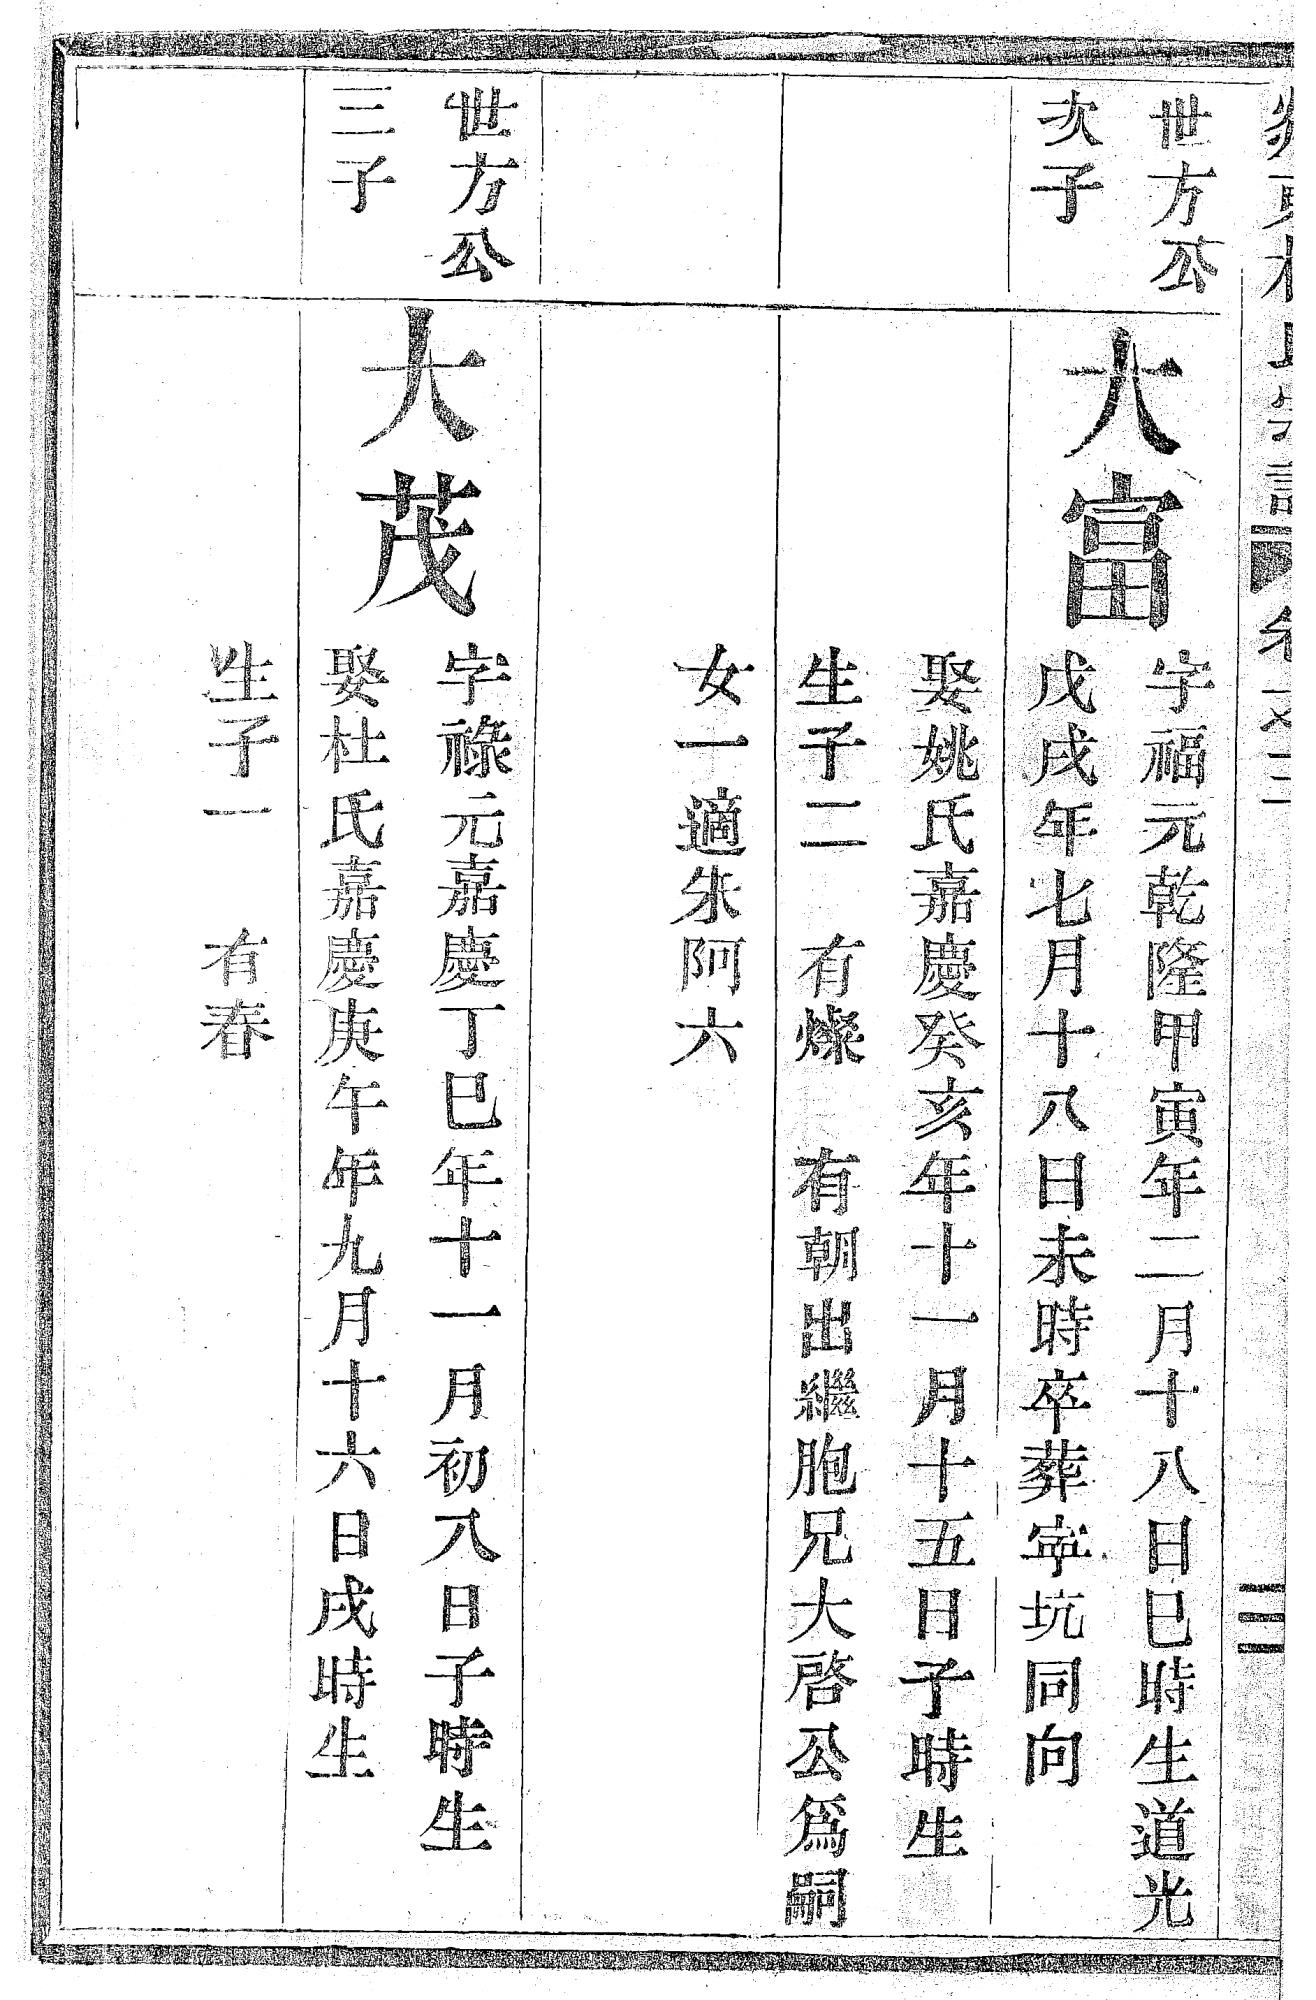 世方公
次子
大富
字福元乾隆甲寅年二月十八日巳時生道光
戊戌年七月十八日未時卒葬寜坑同向
娶姚氏嘉慶癸亥年十一月十五日子時生
生子二　有燦　有朝出繼胞兄大啓公爲嗣
女一適朱阿六
世方公
三子
大茂
字祿元嘉慶丁巳年十一月初八日子時生
娶杜氏嘉慶庚午年九月十六日戌時生
生子一　有春